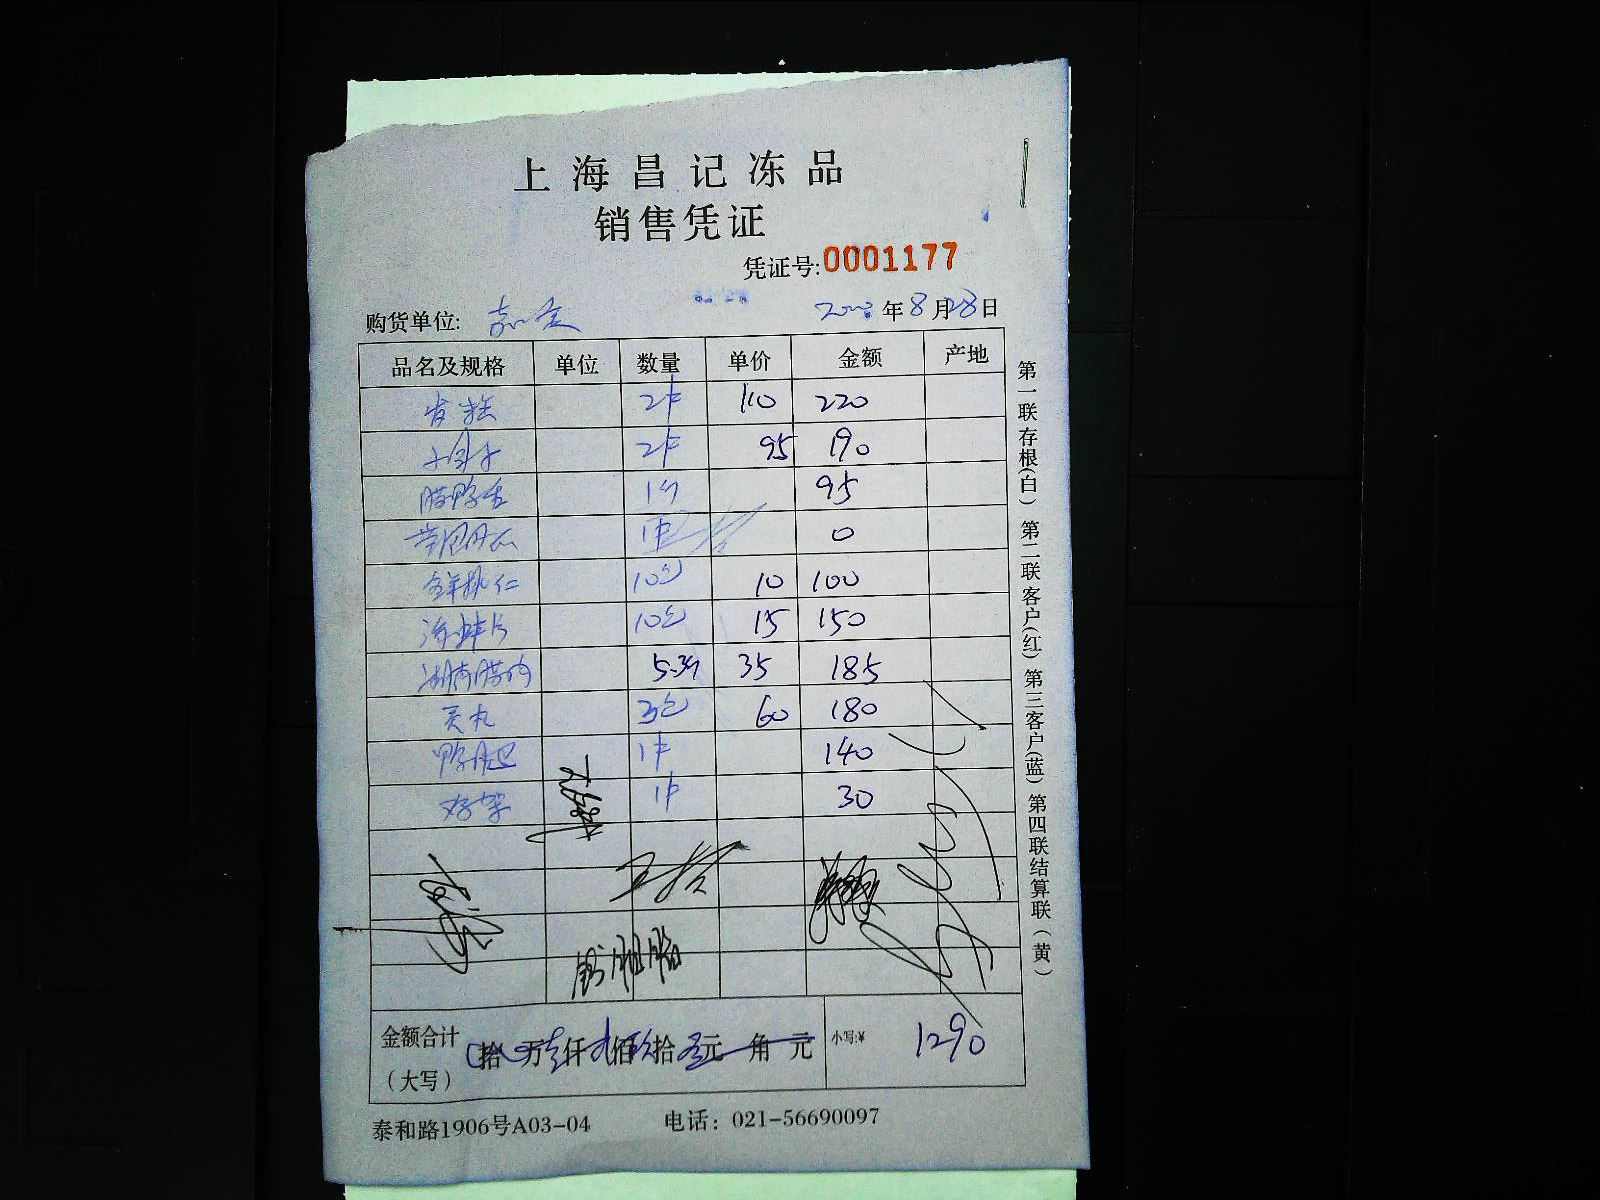 上海昌记冻品
销售凭证
凭证号:0001177
购货单位: 年8月28日
品名及规格 单位 数量 单价 金额 产地
2件 110 220
2件 95 190
腊鸭舌 1份 95
1件 0
鲜桃仁 10包 10 100
海蚌片 10包 15 150
湖南腊肉 5.3斤 35 185
贡丸 3包 60 180
鸭肫 1件 140
1件 30
金额合计
(大写) 拾 万壹仟贰佰玖拾零元 角 元 小写:¥ 1290
泰和路1906号A03-04 电话：021-56690097
第一联存根(白) 第二联客户(红) 第三客户(蓝) 第四联结算联(黄)